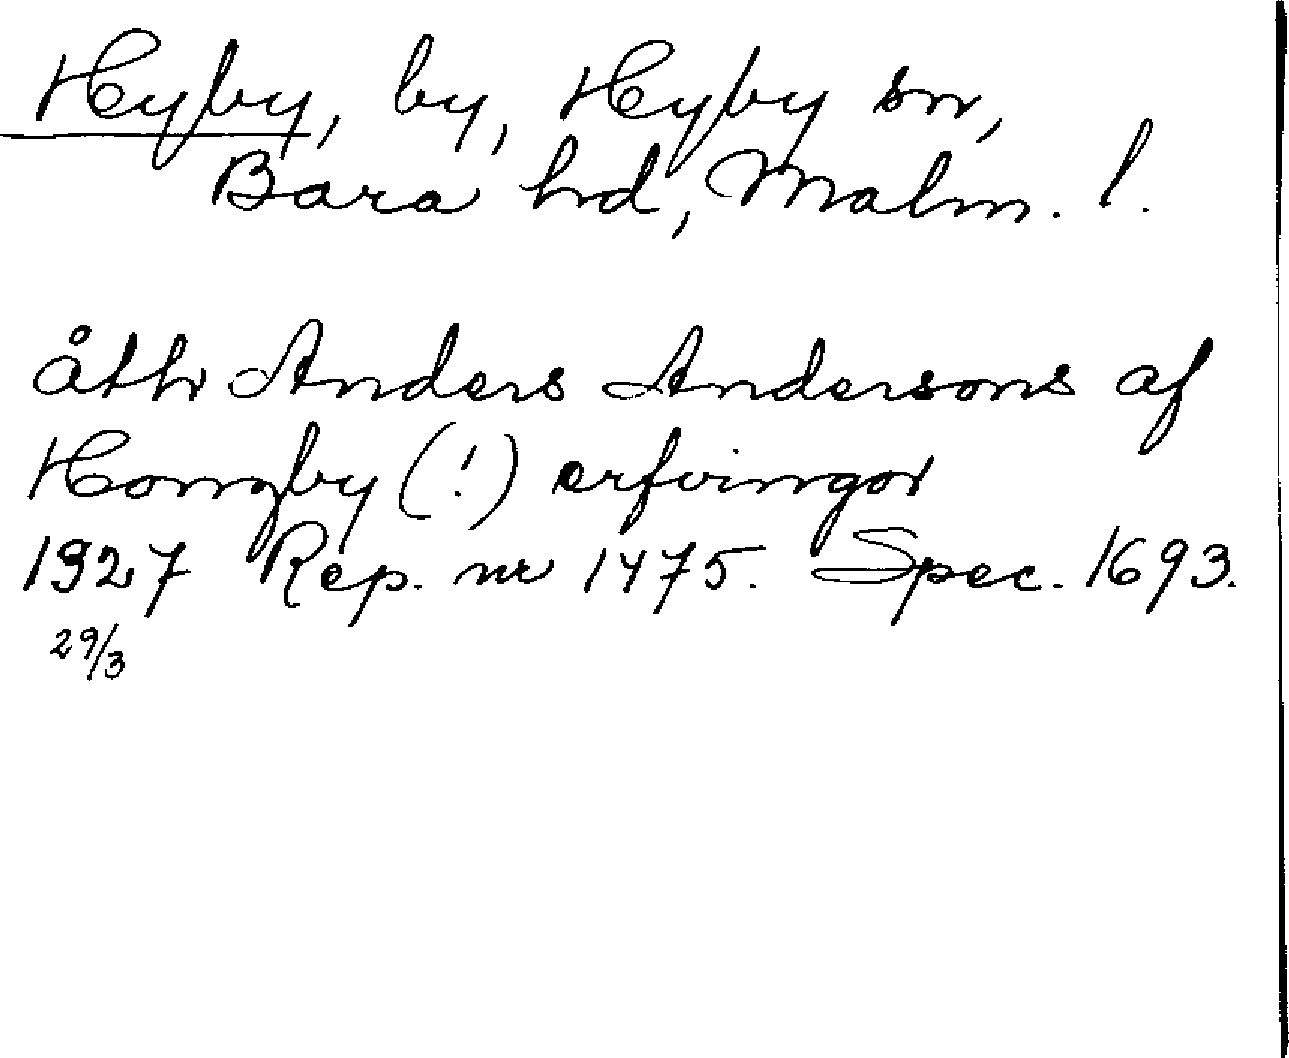 Hyby, by, Hyby sn,
Bara hd, Malm. l.
åthr Anders Andersons af
Hongby (!) erfvingar
1927 Rep. nr 1475. Spec. 1693.
29/3